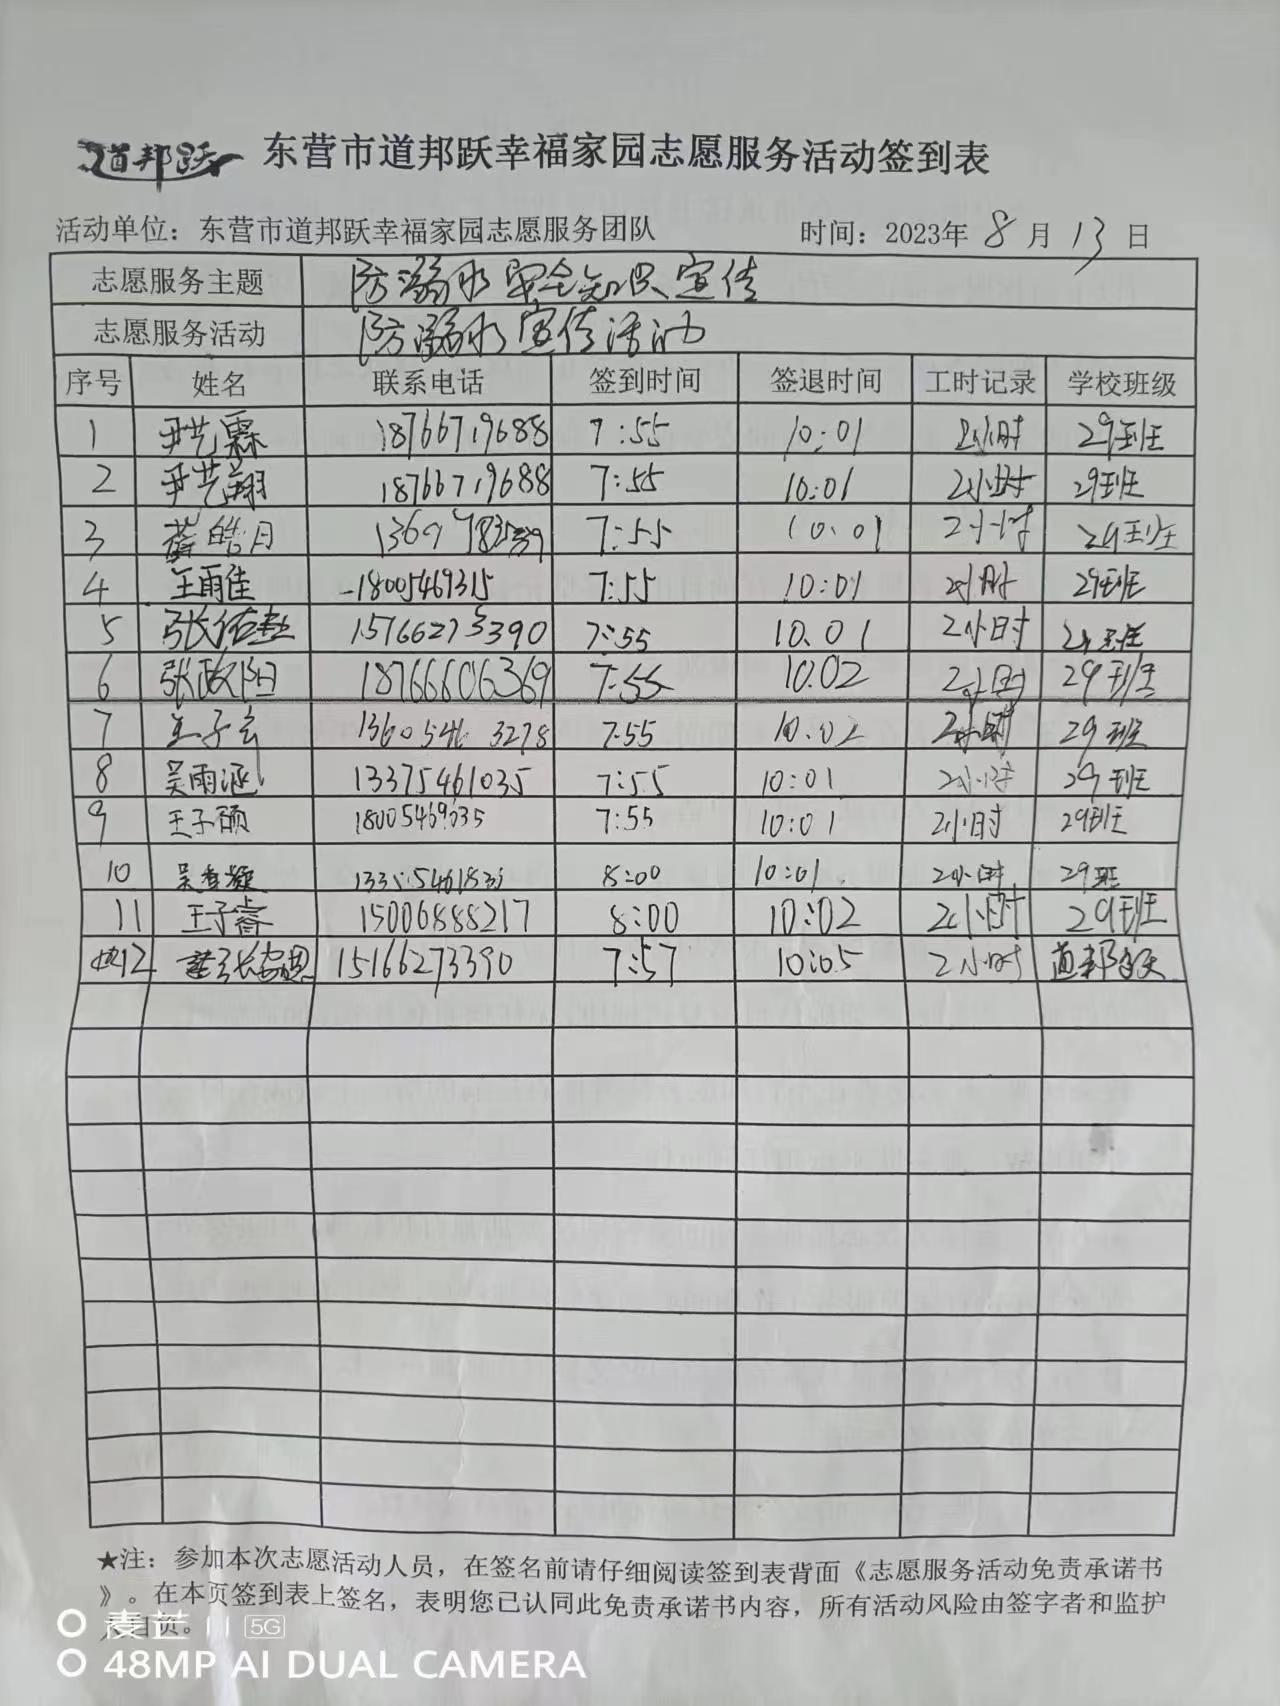 道邦跃 东营市道邦跃幸福家园志愿服务活动签到表
活动单位：东营市道邦跃幸福家园志愿服务团队 时间：2023年 8 月 13 日
志愿服务主题 防溺水安全知识宣传
志愿服务活动 防溺水宣传活动
序号 姓名 联系电话 签到时间 签退时间 工时记录 学校班级
1 尹艺霖 18766719688 7:55 10:01 2小时 29班
2 尹艺翔 18766719688 7:55 10:01 2小时 29班
3 皓月 7:55 10.01 2小时 29班
4 王雨佳 18005469315 7:55 10:01 2小时 29班
5 张佑赫 15166273390 7:55 10.01 2小时 29班
6 张政阳 18766606369 7:55 10.02 2小时 29班
7 王子玄 13605463278 7:55 10.02 2小时 29班
8 吴雨涵 13375461035 7:55 10:01 2小时 29班
9 王子硕 18005469635 7:55 10:01 2小时 29班
10 吴 8:00 10:01 2小时 29班
11 王子睿 15006888217 8:00 10:02 2小时 29班
12 15166273390 7:57 10:05 2小时 道邦跃
★注：参加本次志愿活动人员，在签名前请仔细阅读签到表背面《志愿服务活动免责承诺书
》。在本页签到表上签名，表明您已认同此免责承诺书内容，所有活动风险由签字者和监护
人自负。
麦芒 11 5G
48MP AI DUAL CAMERA